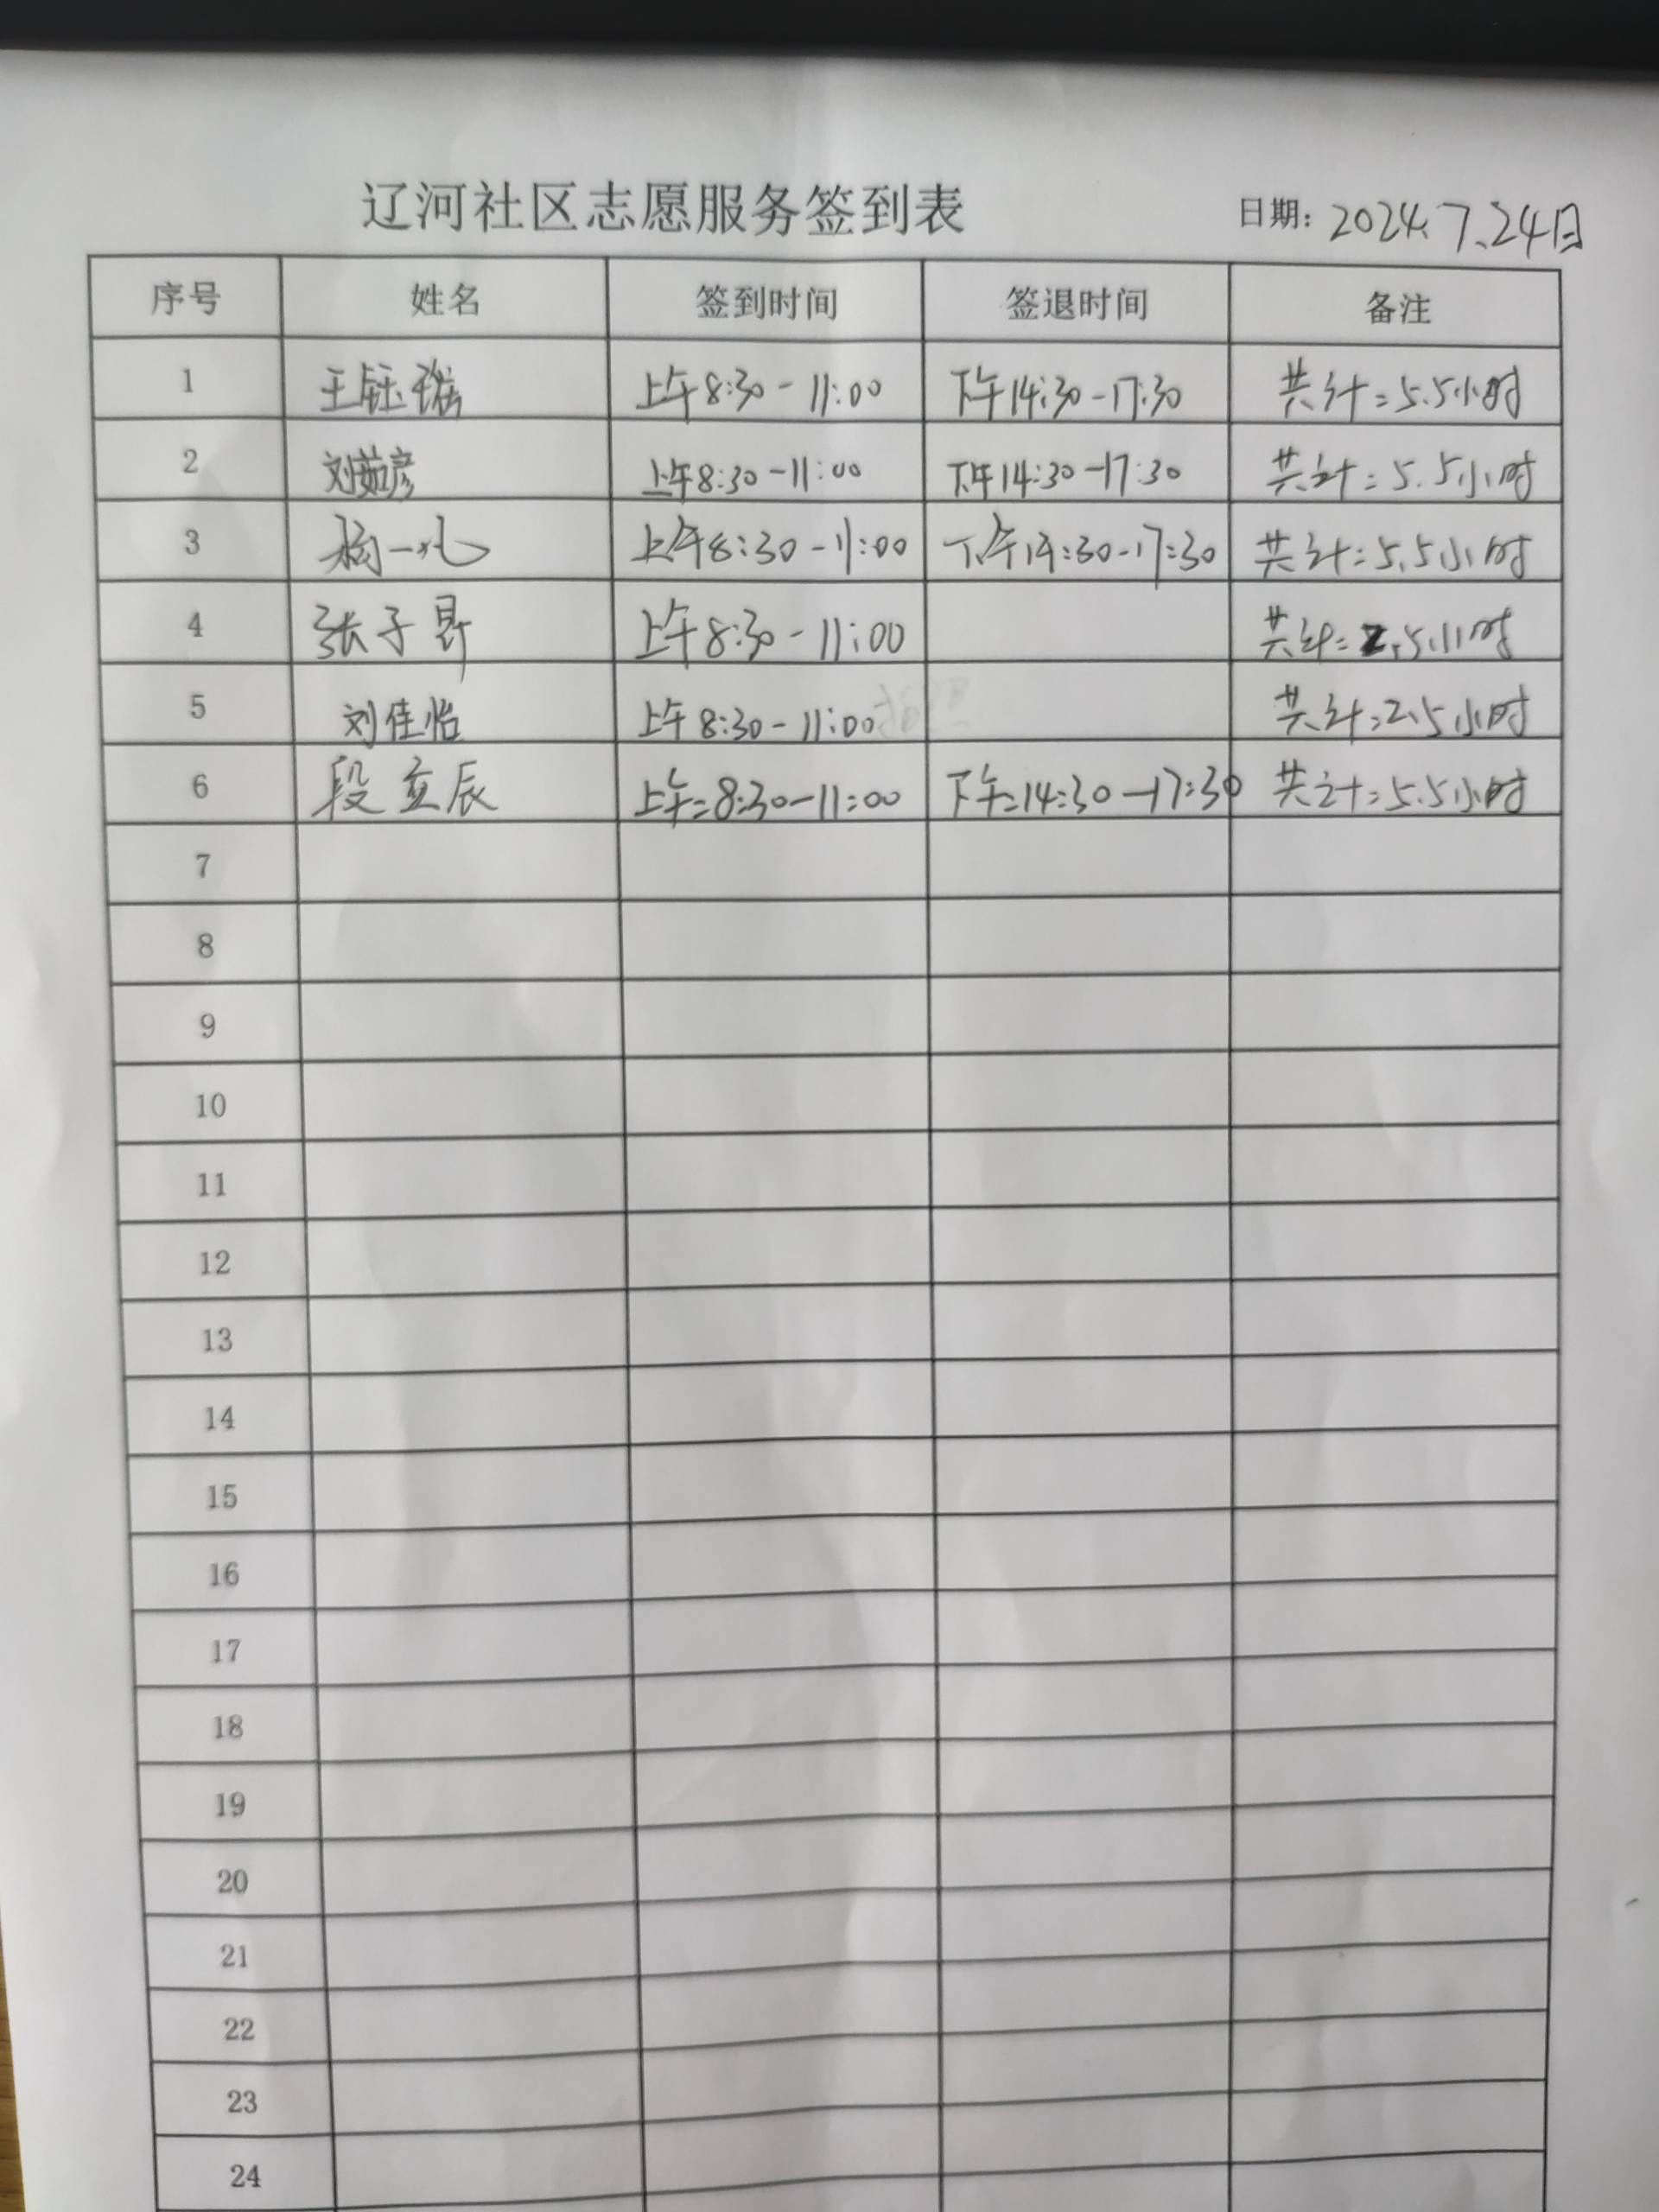 辽河社区志愿服务签到表 日期: 2024.7.24日
序号 姓名 签到时间 签退时间 备注
1 王钰瑞 上午8:30-11:00 下午14:30-17:30 共计=5.5小时
2 刘茹彦 上午8:30-11:00 下午14:30-17:30 共计=5.5小时
3 杨一 上午8:30-11:00 下午14:30-17:30 共计=5.5小时
4 张子昇 上午8:30-11:00 共计=2.5小时
5 刘佳怡 上午8:30-11:00 共计=2.5小时
6 段立辰 上午=8:30-11:00 下午=14:30-17:30 共计=5.5小时
7
8
9
10
11
12
13
14
15
16
17
18
19
20
21
22
23
24